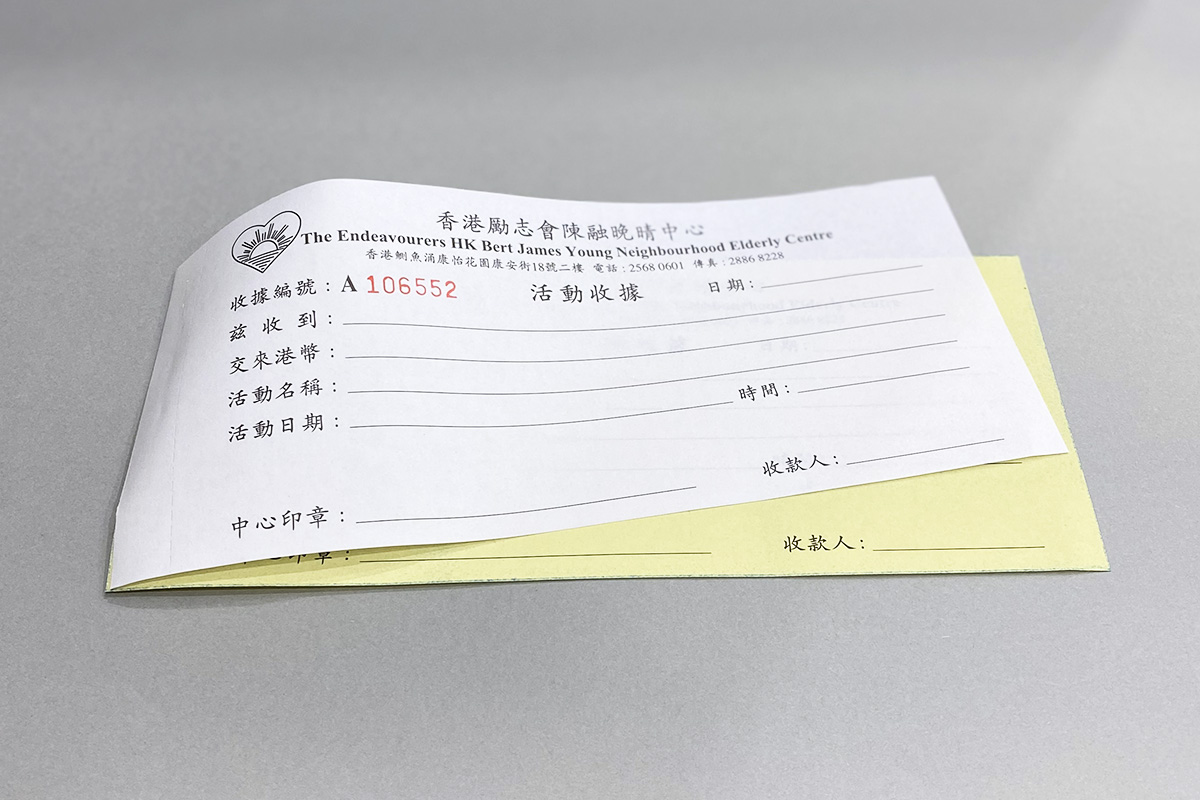 香港勵志會陳融晚晴中心
The Endeavourers HK Bert James Young Neighbourhood Elderly Centre
香港鰂魚涌康怡花園康安街18號二樓 電話：2568 0601 傳真：2886 8228
收據編號：A 106552 活動收據 日期：
茲收到：
交來港幣：
活動名稱：
活動日期： 時間：
收款人：
中心印章：
印章： 收款人：